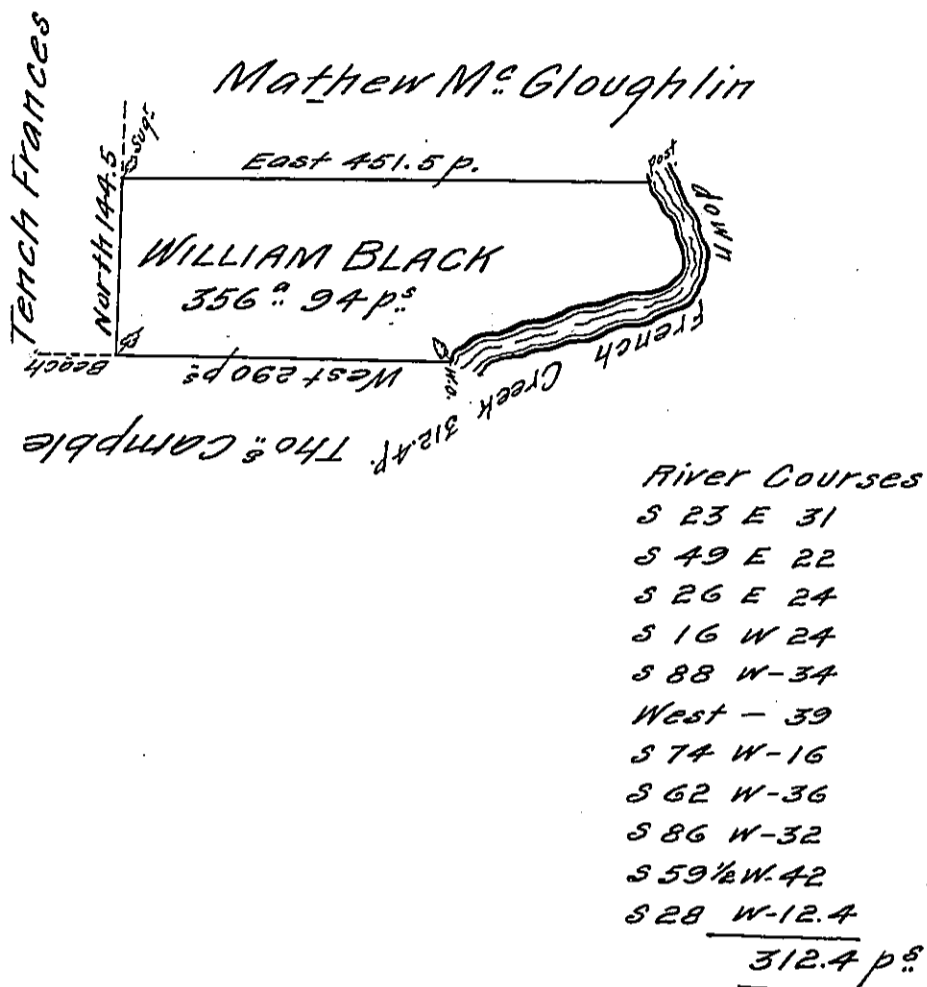 Tench Frances
Mathew Mc Gloughlin
Sugr
post
East 451.5 p.
North 144.5
down
WILLIAM BLACK
356 a 94 ps
French Creek 312.4 p.
Beach
West 290 ps
W.O.
Thos Campble
River Courses
S 23 E 31
S 49 E 22
S 26 E 24
S 16 W 24
S 88 W-34
West - 39
S 74 W-16
S 62 W-36
S 86 W-32
S 59 ½ W-42
S 28 W-12.4
312.4 ps